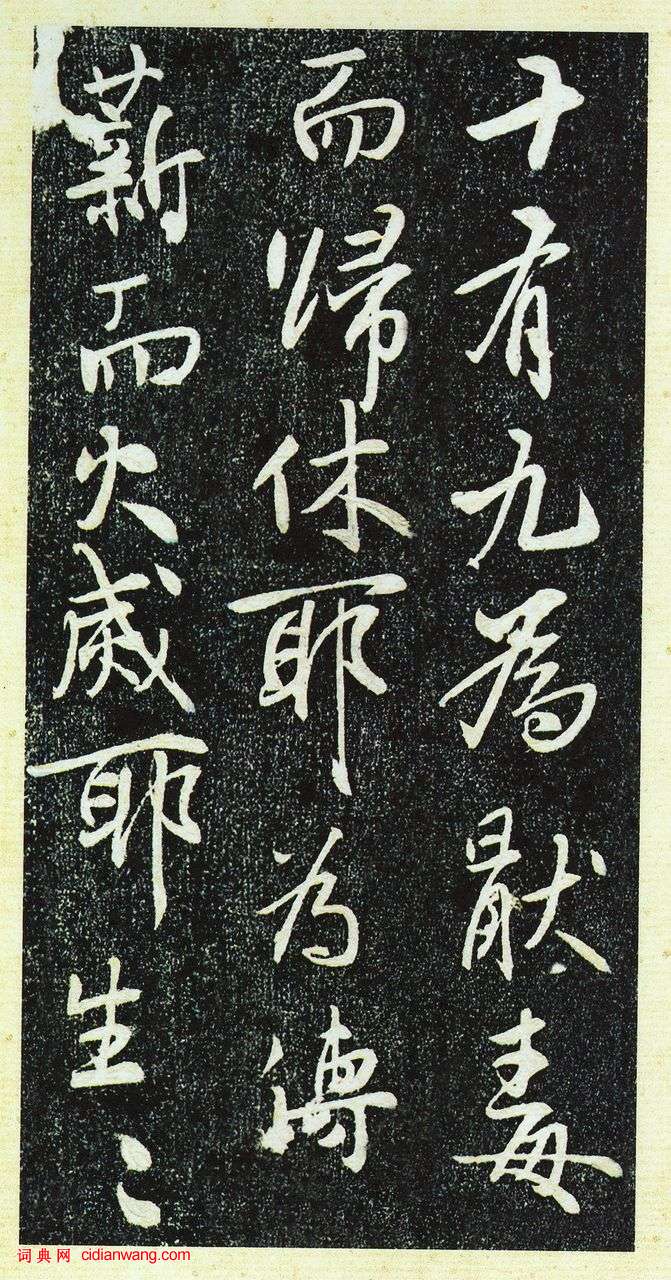 十有九為猒毒
而歸休耶為傳
薪而火威耶生〻
词典网 cidianwang.com